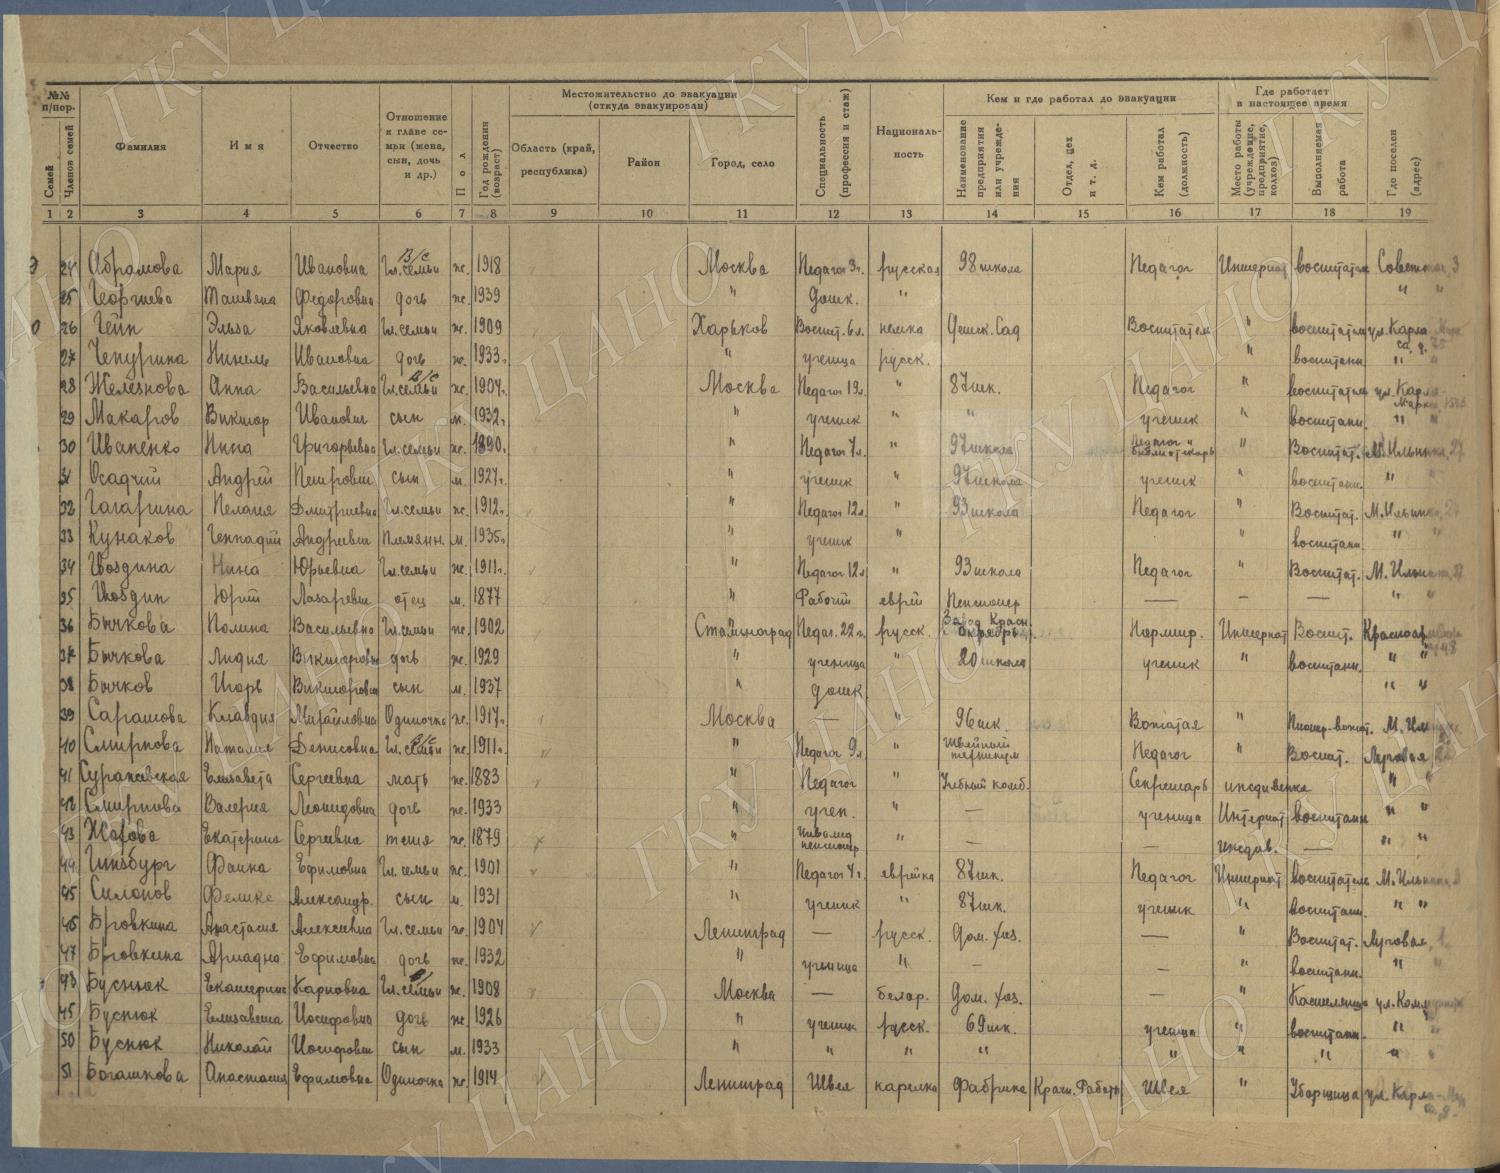 №№ п/пор.
Семей
Членов семей
Фамилия
Имя
Отчество
Отношение к главе семьи (жена, сын, дочь и др.)
Пол
Год рождения (возраст)
Местожительство до эвакуации (откуда эвакуирован)
Область (край, республика)
Район
Город, село
Специальность (профессия и стаж)
Националь-ность
Кем и где работал до эвакуации
Наименование предприятия или учрежде-ния
Отдел, цех и т. д.
Кем работал (должность)
Где работает в настоящее время
Место работы (учреждение, предприятие, колхоз)
Выполняемая работа
Где поселен (адрес)
1 2 3 4 5 6 7 8 9 10 11 12 13 14 15 16 17 18 19
24 Абрамова Мария Ивановна Гл. семьи В/с ж. 1918 Москва Педагог 3 г. русская 98 школа Педагог Интернат воспитатель
25 Георгиева Татьяна Федоровна дочь ж. 1939 " дошк. " " "
26 Гейн Эльза Яковлевна Гл. семьи ж. 1909 Харьков Воспит. 6 л. немка Детск. Сад Воспитатель " воспитатель ул. Карла
27 Чепурина Нинель Ивановна дочь ж. 1933г. " ученица русск. " воспитанн. " "
28 Железнова Анна Васильевна Гл. семьи В/с ж. 1904г. Москва Педагог 19 л. " 87 шк. Педагог " воспитатель ул. Карла
29 Макаров Виктор Иванович сын м. 1932г. " ученик " " ученик " воспитанн. " "
30 Иваненко Нина Григорьевна Гл. семьи ж. 1890г. " Педагог 7 л. " 97 школа Педагог и библиотекарь " Воспитат. М. Ильинка, 27
31 Осадчий Андрей Петрович сын м. 1927г. " ученик " 97 школа ученик " воспитанн. "
32 Гагарина Пелагея Дмитриевна Гл. семьи ж. 1912г. " Педагог 12 л. " 93 школа Педагог " Воспитат. М. Ильинка, 27
33 Кунаков Геннадий Андреевич Племянн. м. 1935г. " ученик " " воспитанн. " "
34 Гвоздина Нина Юрьевна Гл. семьи ж. 1911г. " Педагог 12 л " 93 школа Педагог " Воспитат. М. Ильинка, 27
35 Гвоздин Юрий Лазаревич отец м. 1877 " Рабочий еврей Пенсионер — — — " "
36 Бычкова Полина Васильевна Гл. семьи ж. 1902 Сталинград Педаг. 22 г. русск. Завод Красн. Октябрь Нормир. Интернат Воспит.
37 Бычкова Лидия Викторовна дочь ж. 1929 " ученица " 20 школа ученик " воспитанн. " "
38 Бычков Игорь Викторович сын м. 1937 " дошк. " "
39 Сарашова Клавдия Михайловна Одиночка ж. 1917г. Москва — " 96 шк. Вожатая " Пионер-вожат.
40 Смирнова Наталия Денисовна Гл. семьи В/с ж. 1911г. " Педагог 9 л " Швейный техникум Педагог " Воспит. Луговая
41 Суражевская Елизавета Сергеевна мать ж. 1883 " Педагог " Учебный комб. Секретарь иждивенка "
42 Смирнова Валерия Леонидовна дочь ж. 1933 " учен. " — ученица Интернат воспитанн " "
43 Жарова Екатерина Сергеевна теща ж. 1879 " Инвалид пенсионер " — — иждив. — " "
44 Гинзбург Фаина Ефимовна Гл. семьи ж. 1901 " Педагог 4 г. еврейка 87 шк. Педагог Интернат воспитатель М. Ильинка
45 Силонов Феликс Александр. сын м. 1931 " ученик " 87 шк. ученик " воспитанн. " "
46 Бровкина Анастасия Алексеевна Гл. семьи ж. 1904 Ленинград — русск. Дом. хоз. — " Воспитат. Луговая,
47 Бровкина Ариадна Ефимовна дочь ж. 1932 " ученица " — — " воспитанн. " "
48 Буснюк Екатерина Карповна Гл. семьи В/ ж. 1908 Москва — белор. Дом. хоз. — " Кастелянша
45 Буснюк Елизавета Иосифовна дочь ж. 1926 " ученица русск. 69 шк. ученица " воспитанн. "
50 Буснюк Николай Иосифович сын м. 1933 " " " " " " " " "
51 Богашкова Анастасия Ефимовна Одиночка ж. 1914 Ленинград Швея карелка Фабрика Красн. Работн Швея " Уборщица ул. Карла
ГКУ ЦАНО